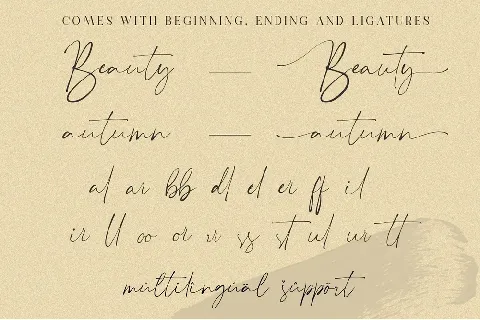 COMES WITH BEGINNING, ENDING AND LIGATURES
Beauty — Beauty
autumn — autumn
al ar bb dl el er ff il
ir ll oo or rr ss st ul ur tt
multilingual support